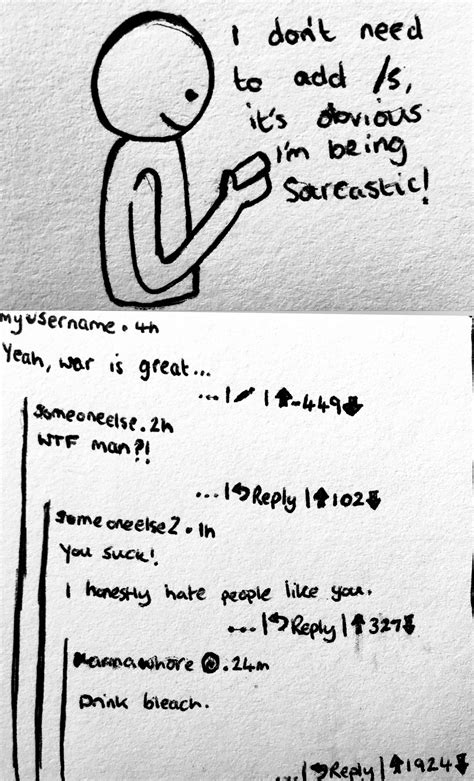 I don't need
to add /s,
it's obvious
I'm being
Sarcastic!
myusername • 4h
Yeah, war is great...
... | | -449
someoneelse • 2h
WTF man?!
... | Reply | 102
someoneelse2 • 1h
You suck!
I honestly hate people like you.
... | Reply | 327
Karmawhore • 24m
Drink bleach.
... | Reply | 1924